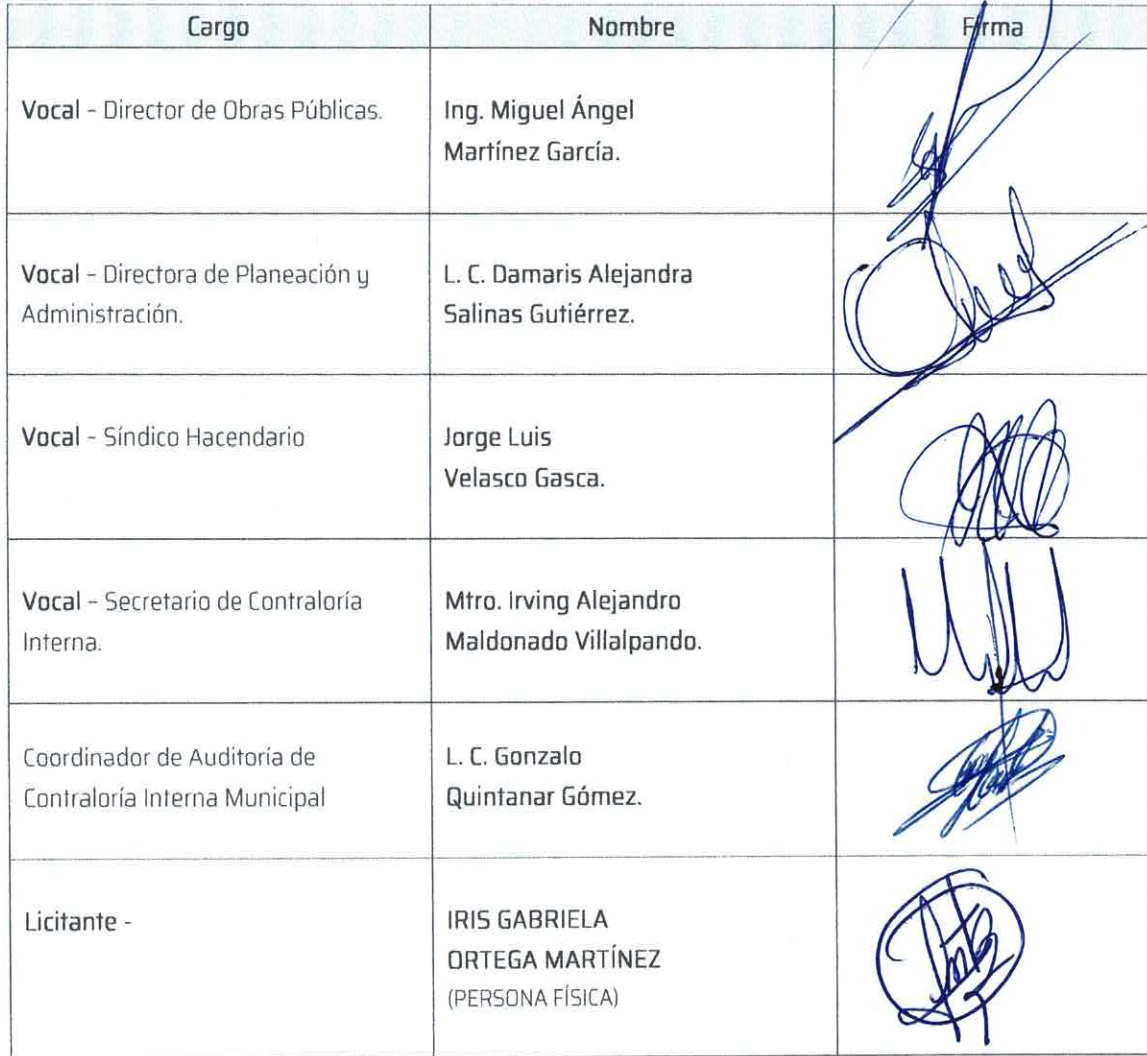 Cargo Nombre Firma
Vocal - Director de Obras Públicas.
Ing. Miguel Ángel
Martínez García.
Vocal - Directora de Planeación y
Administración.
L. C. Damaris Alejandra
Salinas Gutiérrez.
Vocal - Síndico Hacendario
Jorge Luis
Velasco Gasca.
Vocal - Secretario de Contraloría
Interna.
Mtro. Irving Alejandro
Maldonado Villalpando.
Coordinador de Auditoría de
Contraloría Interna Municipal
L. C. Gonzalo
Quintanar Gómez.
Licitante -
IRIS GABRIELA
ORTEGA MARTÍNEZ
(PERSONA FÍSICA)